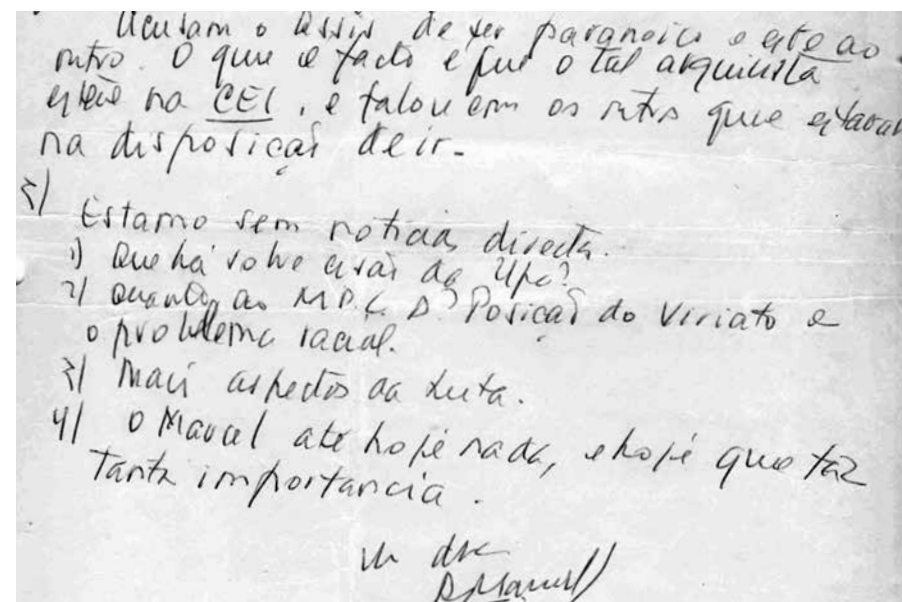 Acusam o Assis de ser paranoico e até ao
outro. O que é facto é que o tal arquivista
esteve na CEI, e falou com os outros que estavam
na disposição de ir.
3)
Estamo sem noticias directa.
1) Que há sobre cisão da Upa?
2) Quanto ao M.P.L.A? Posição do Viriato e
o problema racial.
3) Mais aspectos da Luta.
4) O Marcel até hoje nada, e hoje que faz
Tanta importancia.